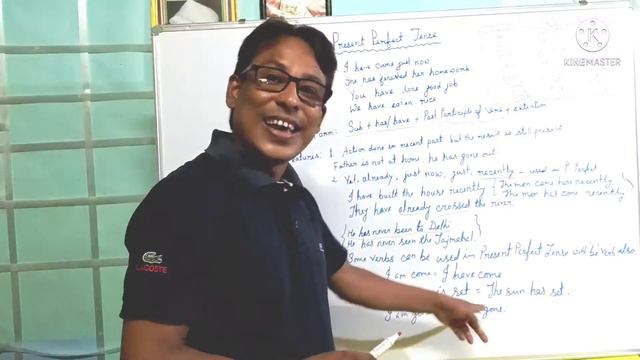 Present Perfect Tense
I have come just now
She has finished her homework
You have done good job
We have eaten rice
Form: Sub + has/have + Past Participle of Verb + extention
eatures: 1. Action done in recent past but the result is still present
Father is not at home he has gone out
2. Yet, already, just now, just, recently - used in P. Perfect
I have built the house recently { The man came here recently
The man has come recently
They have already crossed the river.
{ He has never been to Delhi }
{ He has never seen the Tajmahal. }
Some verbs can be used in Present Perfect Tense with 'be' verb also
I am come = I have come
is set = The sun has set.
I am gone.
LACOSTE
KINEMASTER